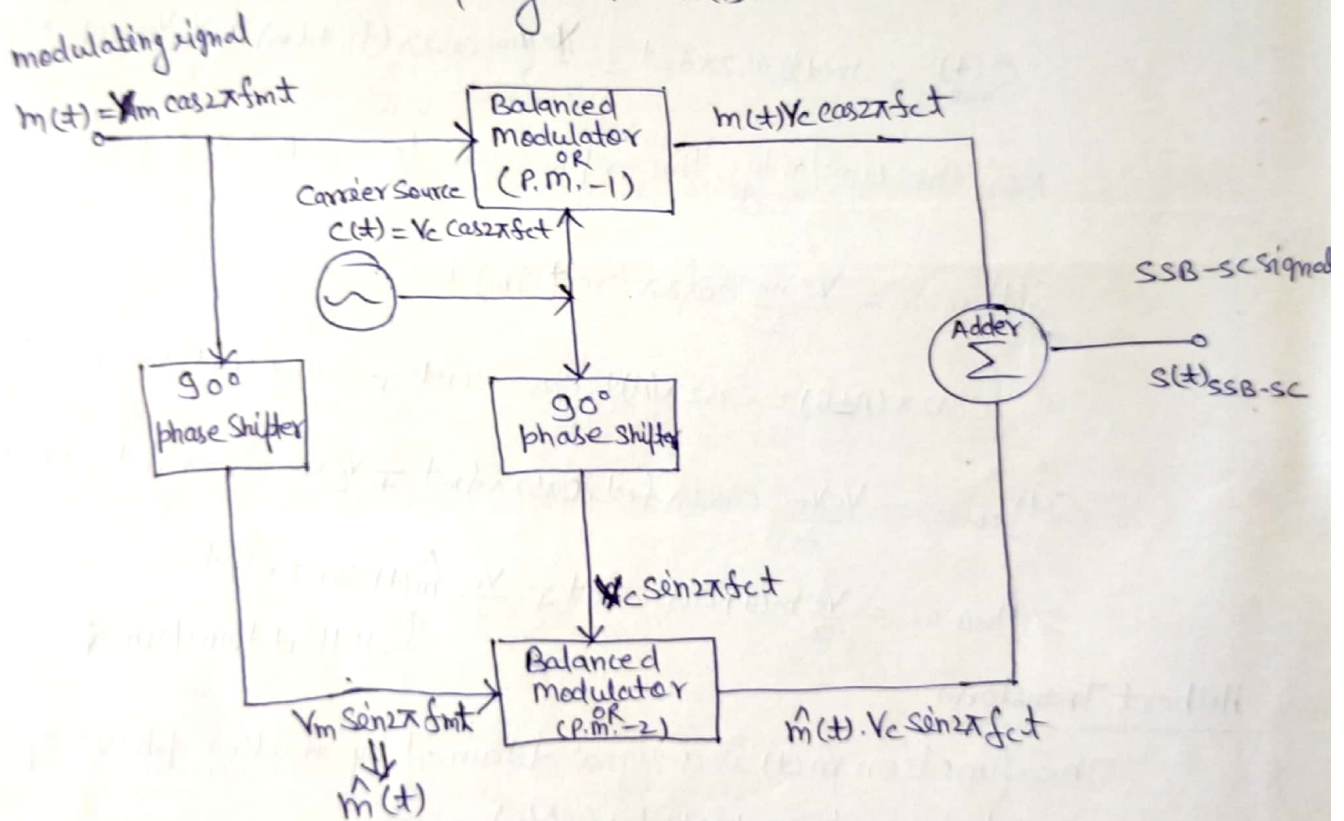 modulating signal
m(t) = Vm cos2πfmt
Balanced
modulator
OR
(P.M.-1)
m(t)Vc cos2πfct
Carrier Source
C(t) = Vc Cos2πfct
SSB-SC signal
Adder
Σ
S(t)SSB-SC
90°
phase shifter
90°
phase shifter
Vc sin2πfct
Balanced
modulator
OR
(P.M.-2)
Vm sin2πfmt
m̂(t)
m̂(t).Vc sin2πfct